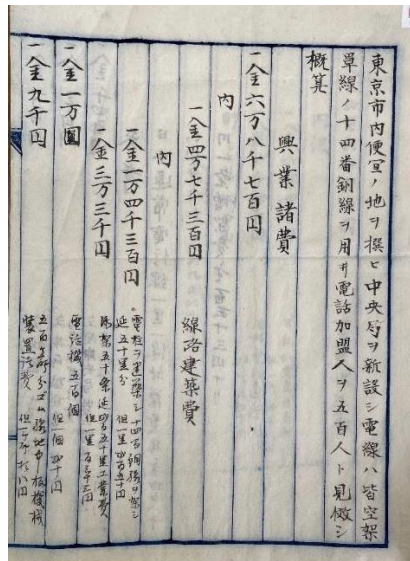 東京市内便宜ノ地ヲ撰ヒ中央局ヲ新設シ電線ハ皆空架
單線ノ十四番銅線ヲ用ヰ電話加盟人ヲ五百人ト見做シ
概算
興業諸費
一金六万八千七百円
内
一金四万七千三百円 線路建築費
内
一金一万四千三百円 電柱ヲ建築シ十四番銅線ヲ架シ
延五十里分 但一里
一金三万三千円 五十条延 五十里工業費
但一里
一金一万円 電話機五百個
但一個 十円
一金九千円 五百 分 中央局機械
装置諸費 但